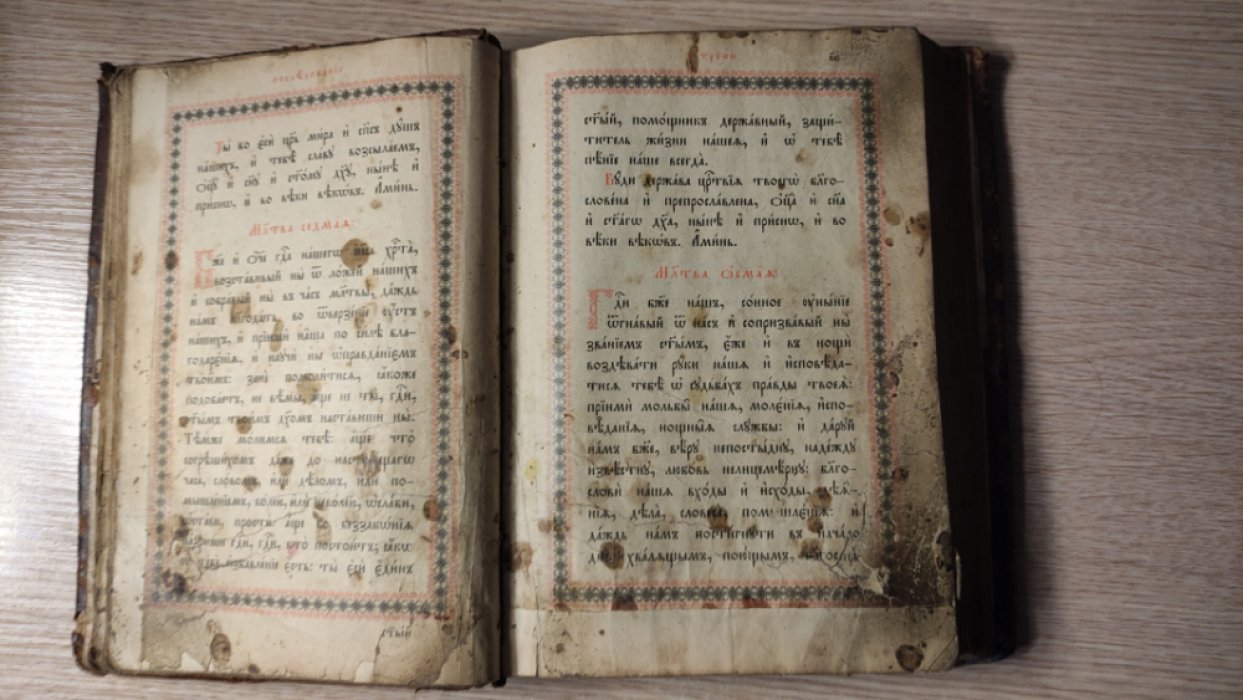 послѣдованїе
Ты́ бо є҆сѝ цр҃ь ми́ра и҆ сп҃съ дꙋ́шъ
на́шихъ, и҆ тебѣ̀ сла́вꙋ возсыла́емъ,
ѻ҆ц҃ꙋ̀ и҆ сн҃ꙋ и҆ ст҃о́мꙋ дх҃ꙋ, ны́нѣ и҆
при́снѡ, и҆ во вѣ́ки вѣкѡ́въ. А҆ми́нь.
Мл҃тва седма́ѧ:
Бж҃е и҆ ѻ҆́ч҃е гдⷭ҇а на́шегѡ і҆и҃са хрⷭ҇та̀,
возста́вивый ны̀ ѿ ло́жей на́шихъ
и҆ собра́вый ны̀ въ ча́съ мл҃твы, да́ждь
на́мъ благода́ть во ѿверзе́нїе ᲂу҆́стъ
на́шихъ, и҆ прїимѝ на́ша по си́лѣ бл҃а-
годарє́нїѧ, и҆ наꙋчѝ ны̀ ѡ҆правда́нїємъ
твои̑мъ: занѐ помоли́тисѧ, ꙗ҆́коже
подоба́етъ, не вѣ́мы, а҆́ще не ты̀, гдⷭ҇и,
ст҃ы́мъ твои́мъ дх҃омъ наста́виши ны̀:
Тѣ́мже мо́лимсѧ тебѣ̀: а҆́ще что̀
согрѣши́хомъ да́же до настоѧ́щагѡ
часа̀, сло́вомъ, и҆лѝ дѣ́ломъ, и҆лѝ по-
мышле́нїемъ, во́лею, и҆лѝ нево́лею, ѡ҆сла́би,
ѡ҆ста́ви, простѝ: а҆́ще бо беззакѡ́нїѧ
на́зриши гдⷭ҇и, гдⷭ҇и, кто̀ постои́тъ; ꙗ҆́кѡ
ᲂу҆ тебє̀ и҆збавле́нїе є҆́сть: ты̀ є҆сѝ є҆ди́нъ
ст҃ы́й
ᲂу҆́трени
ст҃ы́й, помо́щникъ держа́вный, защи́-
титель жи́зни на́шеѧ, и҆ ѡ҆ тебѣ̀
пѣ́нїе на́ше всегда̀.
Бꙋ́ди держа́ва црⷭ҇твїѧ твоегѡ̀ бл҃го-
слове́на и҆ препросла́влена, ѻ҆ц҃а̀ и҆ сн҃а
и҆ ст҃а́гѡ дх҃а, ны́нѣ и҆ при́снѡ, и҆ во
вѣ́ки вѣкѡ́въ. А҆ми́нь.
Мл҃тва ѻ҆сма́ѧ:
Гдⷭ҇и бж҃е на́шъ, со́нное ᲂу҆ны́нїе
ѿгна́вый ѿ на́съ и҆ сопризва́вый ны̀
зва́нїемъ ст҃ы́мъ, є҆́же и҆ въ нощѝ
воздѣва́ти рꙋ́ки на́шѧ и҆ и҆сповѣ́да-
тисѧ тебѣ̀ ѡ҆ сꙋдьба́хъ пра́вды твоеѧ̀:
прїимѝ мольбы̑ на́шѧ, молє́нїѧ, и҆спо-
вѣ̑данїѧ, нощны̑ѧ слꙋ̑жбы: и҆ да́рꙋй
на́мъ бж҃е, вѣ́рꙋ непосты́днꙋ, наде́ждꙋ
и҆звѣ́стнꙋ, любо́вь нелицемѣ́рнꙋ: бл҃го-
словѝ на́шѧ вхо́ды и҆ и҆схо́ды, дѣѧ̑-
нїѧ, дѣла̀, словеса̀, помышлє́нїѧ: и҆
да́ждь на́мъ пости́гнꙋти въ нача́ло
днѐ хва́лѧщымъ, пою́щымъ,